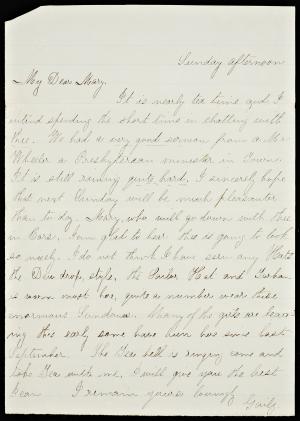 Sunday afternoon
My Dear Mary.
It is nearly tea time and I
intend spending the short time in chatting with
thee. We had a very good sermon from a Mr
Wheeler a Presbyterian minister in Town.
It is still raining quite hard, I sincerely hope
that next Sunday will be much pleasanter
than to day. Mary, who will go down with thee
in Cars. I am glad to hear thee is going to look
so much. I do not think I have seen any Hats
the Dew drop, style, the Sailor Hat and Turban
is worn most here, quite a number wear those
enormous Sundowns. Many of the girls are leav-
ing this early some have been here since last
September. The Tea bell is ringing come and
take Tea with me, I will give you the best
I remain yours lovingly